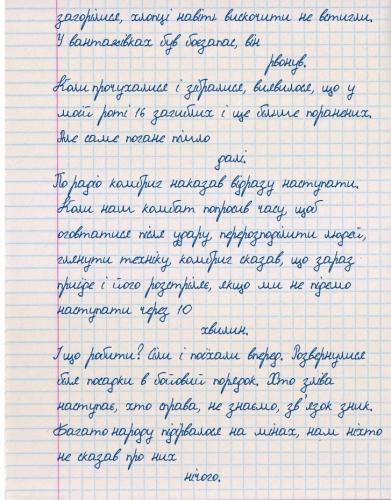 загорілися, хлопці навіть вискочити не встигли.
У вантажівках був боєзапас, він
рвонув.
Коли прочухалися і зібралися, виявилося, що у
моїй роті 16 загиблих і ще більше поранених.
Але саме погане пішло
далі.
По радіо комбриг наказав відразу наступати.
Коли наш комбат попросив часу, щоб
оговтатися після удару, перерозподілити людей,
глянути техніку, комбриг сказав, що зараз
приїде і його розстріляє, якщо ми не підемо
наступати через 10
хвилин.
І що робити? Сіли і поїхали вперед. Розвернулися
біля посадки в бойовий порядок. Хто зліва
наступає, хто справа, не знаємо, зв'язок зник.
Багато народу підірвалося на мінах, нам ніхто
не сказав про них
нічого.